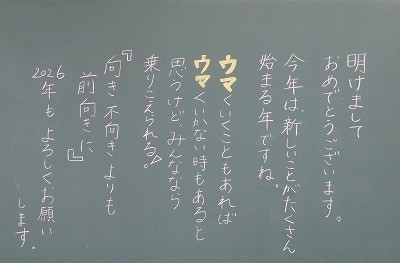 明けまして
おめでとうございます。
今年は、新しいことがたくさん
始まる年ですね。
ウマくいくこともあれば
ウマくいかない時もあると
思うけど、みんななら
乗りこえられる♪
『向き不向きよりも
前向きに』
2026年もよろしくお願い
します。